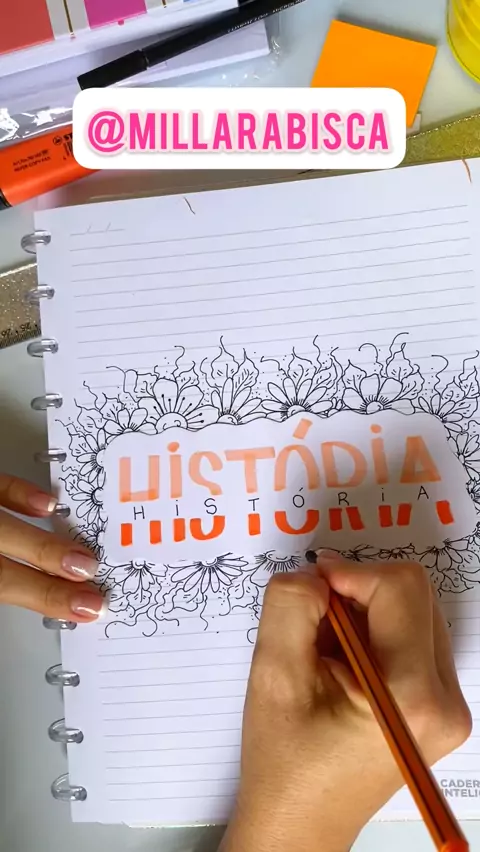 @MILLARABISCA
HiSTÓRiA
HiSTÓRiA
CADER
INTELIG